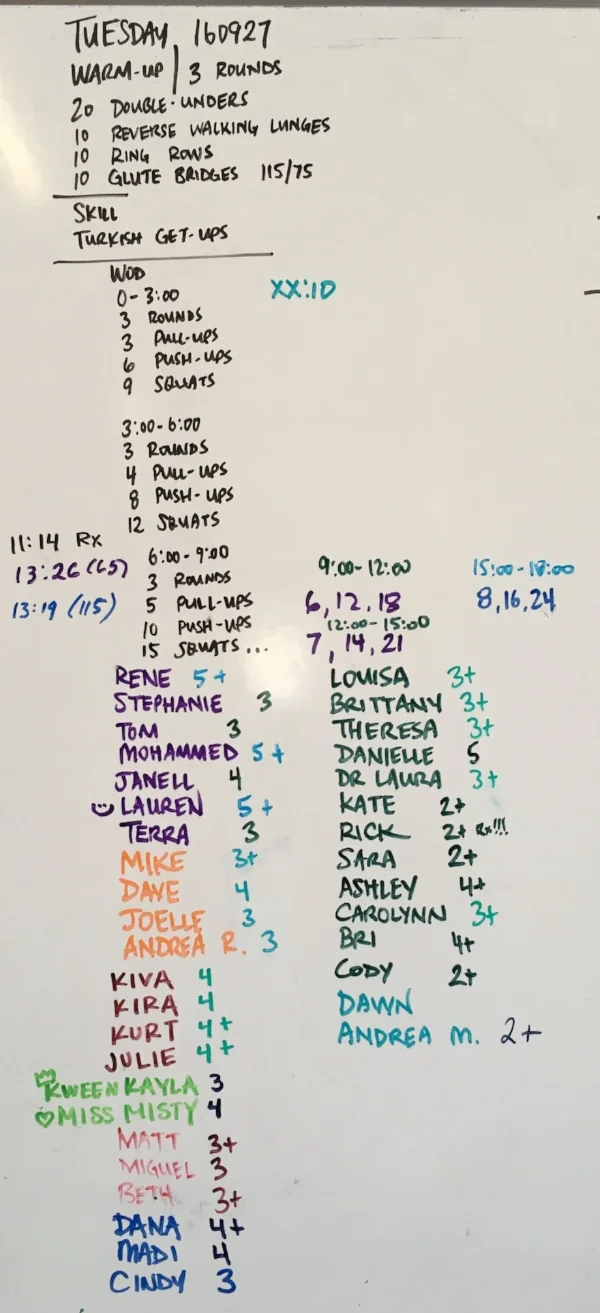 TUESDAY, 160927
WARM-UP | 3 ROUNDS
20 DOUBLE-UNDERS
10 REVERSE WALKING LUNGES
10 RING ROWS
10 GLUTE BRIDGES 115/75
SKILL
TURKISH GET-UPS
WOD
0-3:00 XX:10
3 ROUNDS
3 PULL-UPS
6 PUSH-UPS
9 SQUATS
3:00-6:00
3 ROUNDS
4 PULL-UPS
8 PUSH-UPS
12 SQUATS
11:14 Rx
13:26 (65)
13:19 (115)
6:00-9:00
3 ROUNDS
5 PULL-UPS
10 PUSH-UPS
15 SQUATS...
9:00-12:00
6, 12, 18
12:00-15:00
7, 14, 21
15:00-18:00
8, 16, 24
RENE 5+
STEPHANIE 3
TOM 3
MOHAMMED 5+
JANELL 4
LAUREN 5+
TERRA 3
MIKE 3+
DAVE 4
JOELLE 3
ANDREA R. 3
KIVA 4
KIRA 4
KURT 4+
JULIE 4+
KWEEN KAYLA 3
MISS MISTY 4
MATT 3+
MIGUEL 3
BETH 3+
DANA 4+
MADI 4
CINDY 3
LOUISA 3+
BRITTANY 3+
THERESA 3+
DANIELLE 5
DR LAURA 3+
KATE 2+
RICK 2+ Rx!!!
SARA 2+
ASHLEY 4+
CAROLYNN 3+
BRI 4+
CODY 2+
DAWN
ANDREA M. 2+